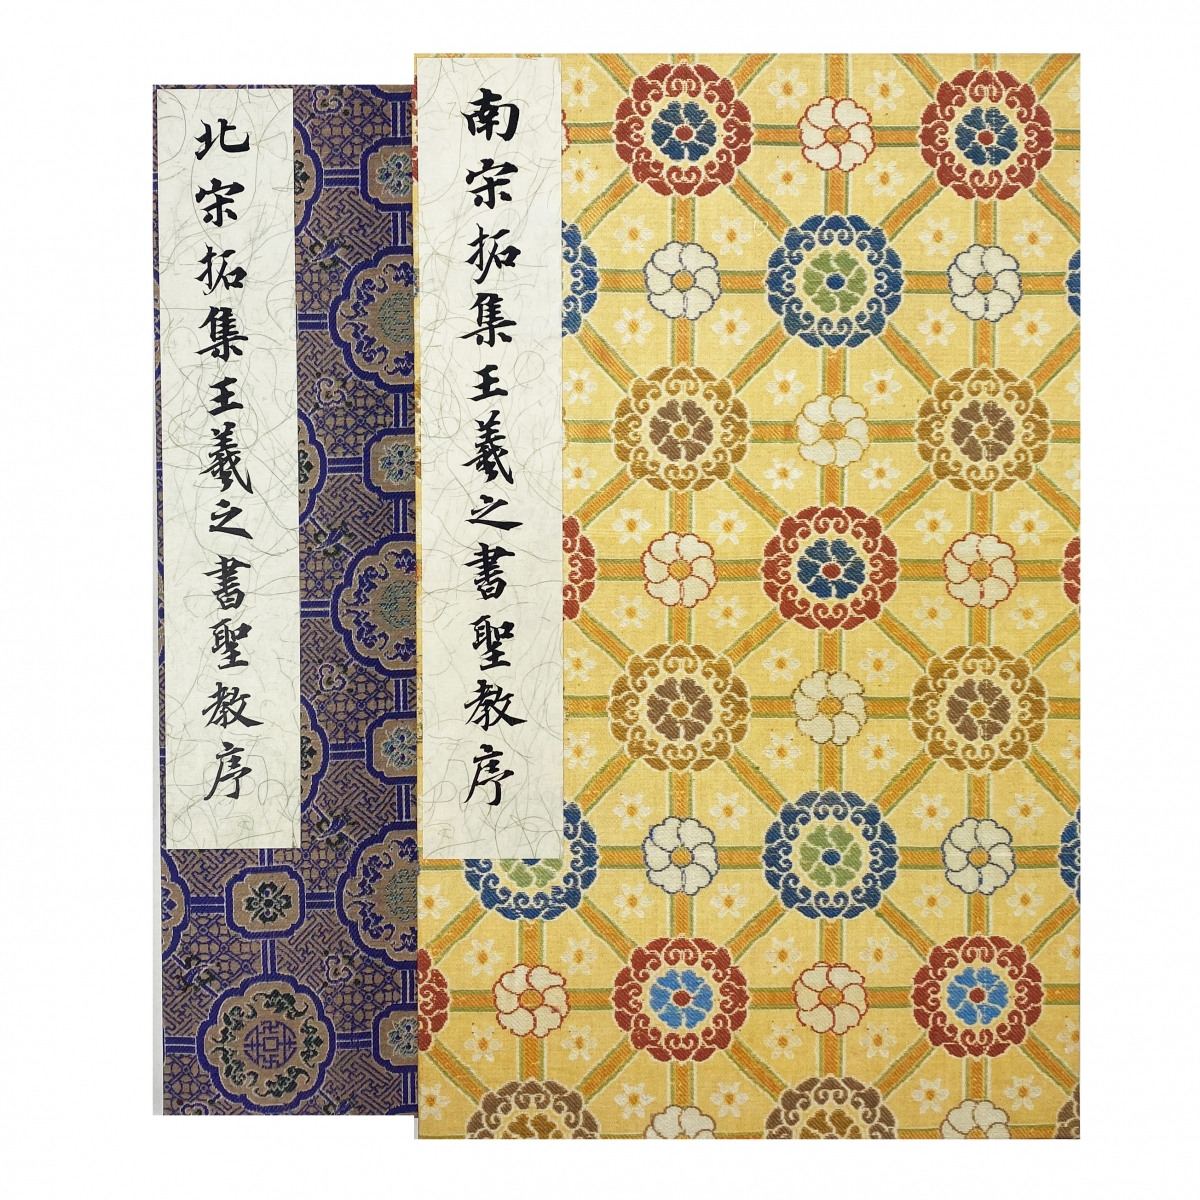 北宋拓集王羲之書聖教序
南宋拓集王羲之書聖教序